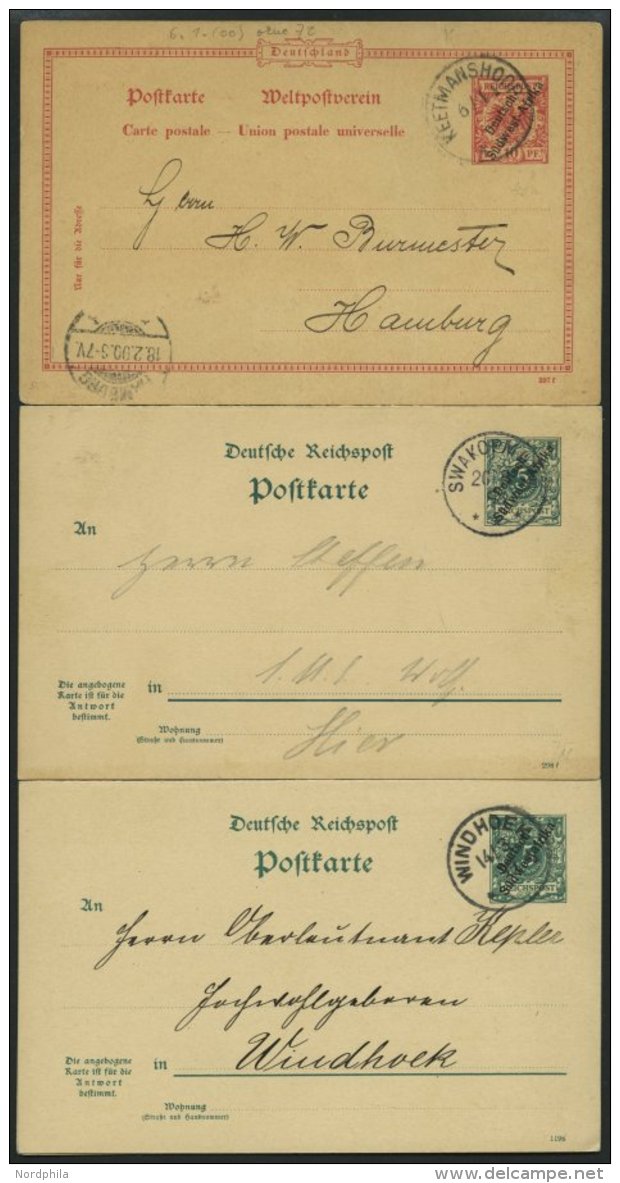 6. 1. (00) ohne 72
Deutschland
Postkarte — Weltpostverein
Carte postale — Union postale universelle
KEETMANSHOOP
6/1
REICHSPOST
Deutsch-
Südwest-Afrika
10 PF
Nur für die Adresse
Herrn
H. W. Burmester
Hamburg
18.2.00.6-7V.
HAMBURG
397 f
Deutsche Reichspost
Postkarte
SWAKOPM
20
Deutsch-
Südwest-Afrika
REICHSPOST
An
Herrn Steffen
S.M.S. Wolf
Die angebogene
Karte ist für die
Antwort
bestimmt.
in
Hier
Wohnung
(Straße und Hausnummer)
298 f
Deutsche Reichspost
Postkarte
WINDHOEK
14
Deutsch-
Südwest-Afrika
REICHSPOST
An
Herrn Oberleutnant Kepler
Hochwohlgeboren
Die angebogene
Karte ist für die
Antwort
bestimmt.
in Windhoek
Wohnung
(Straße und Hausnummer)
1196
Nordphila
delcampe.net